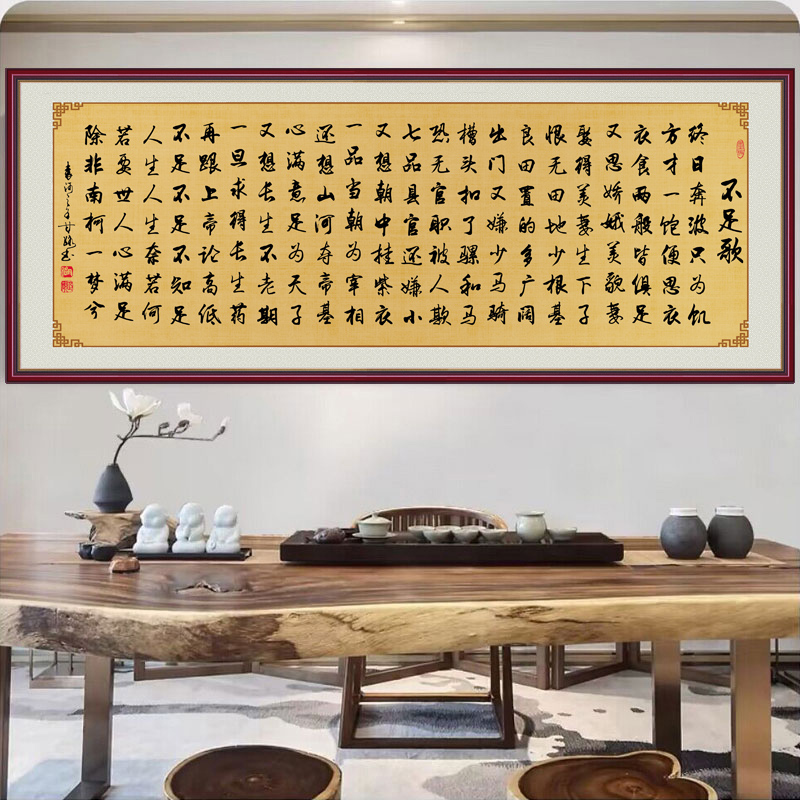 不足歌
终日奔波只为饥
方才一饱便思衣
衣食两般皆俱足
又思娇娥美貌妻
娶得美妻生下子
恨无田地少根基
良田置的多广阔
出门又嫌少马骑
槽头扣了骡和马
恐无官职被人欺
七品县官还嫌小
又想朝中挂紫衣
一品当朝为宰相
还想山河夺帝基
心满意足为天子
又想长生不老期
一旦求得长生药
再跟上帝论高低
不足不足不知足
人生人生奈若何
若要世人心满足
除非南柯一梦兮